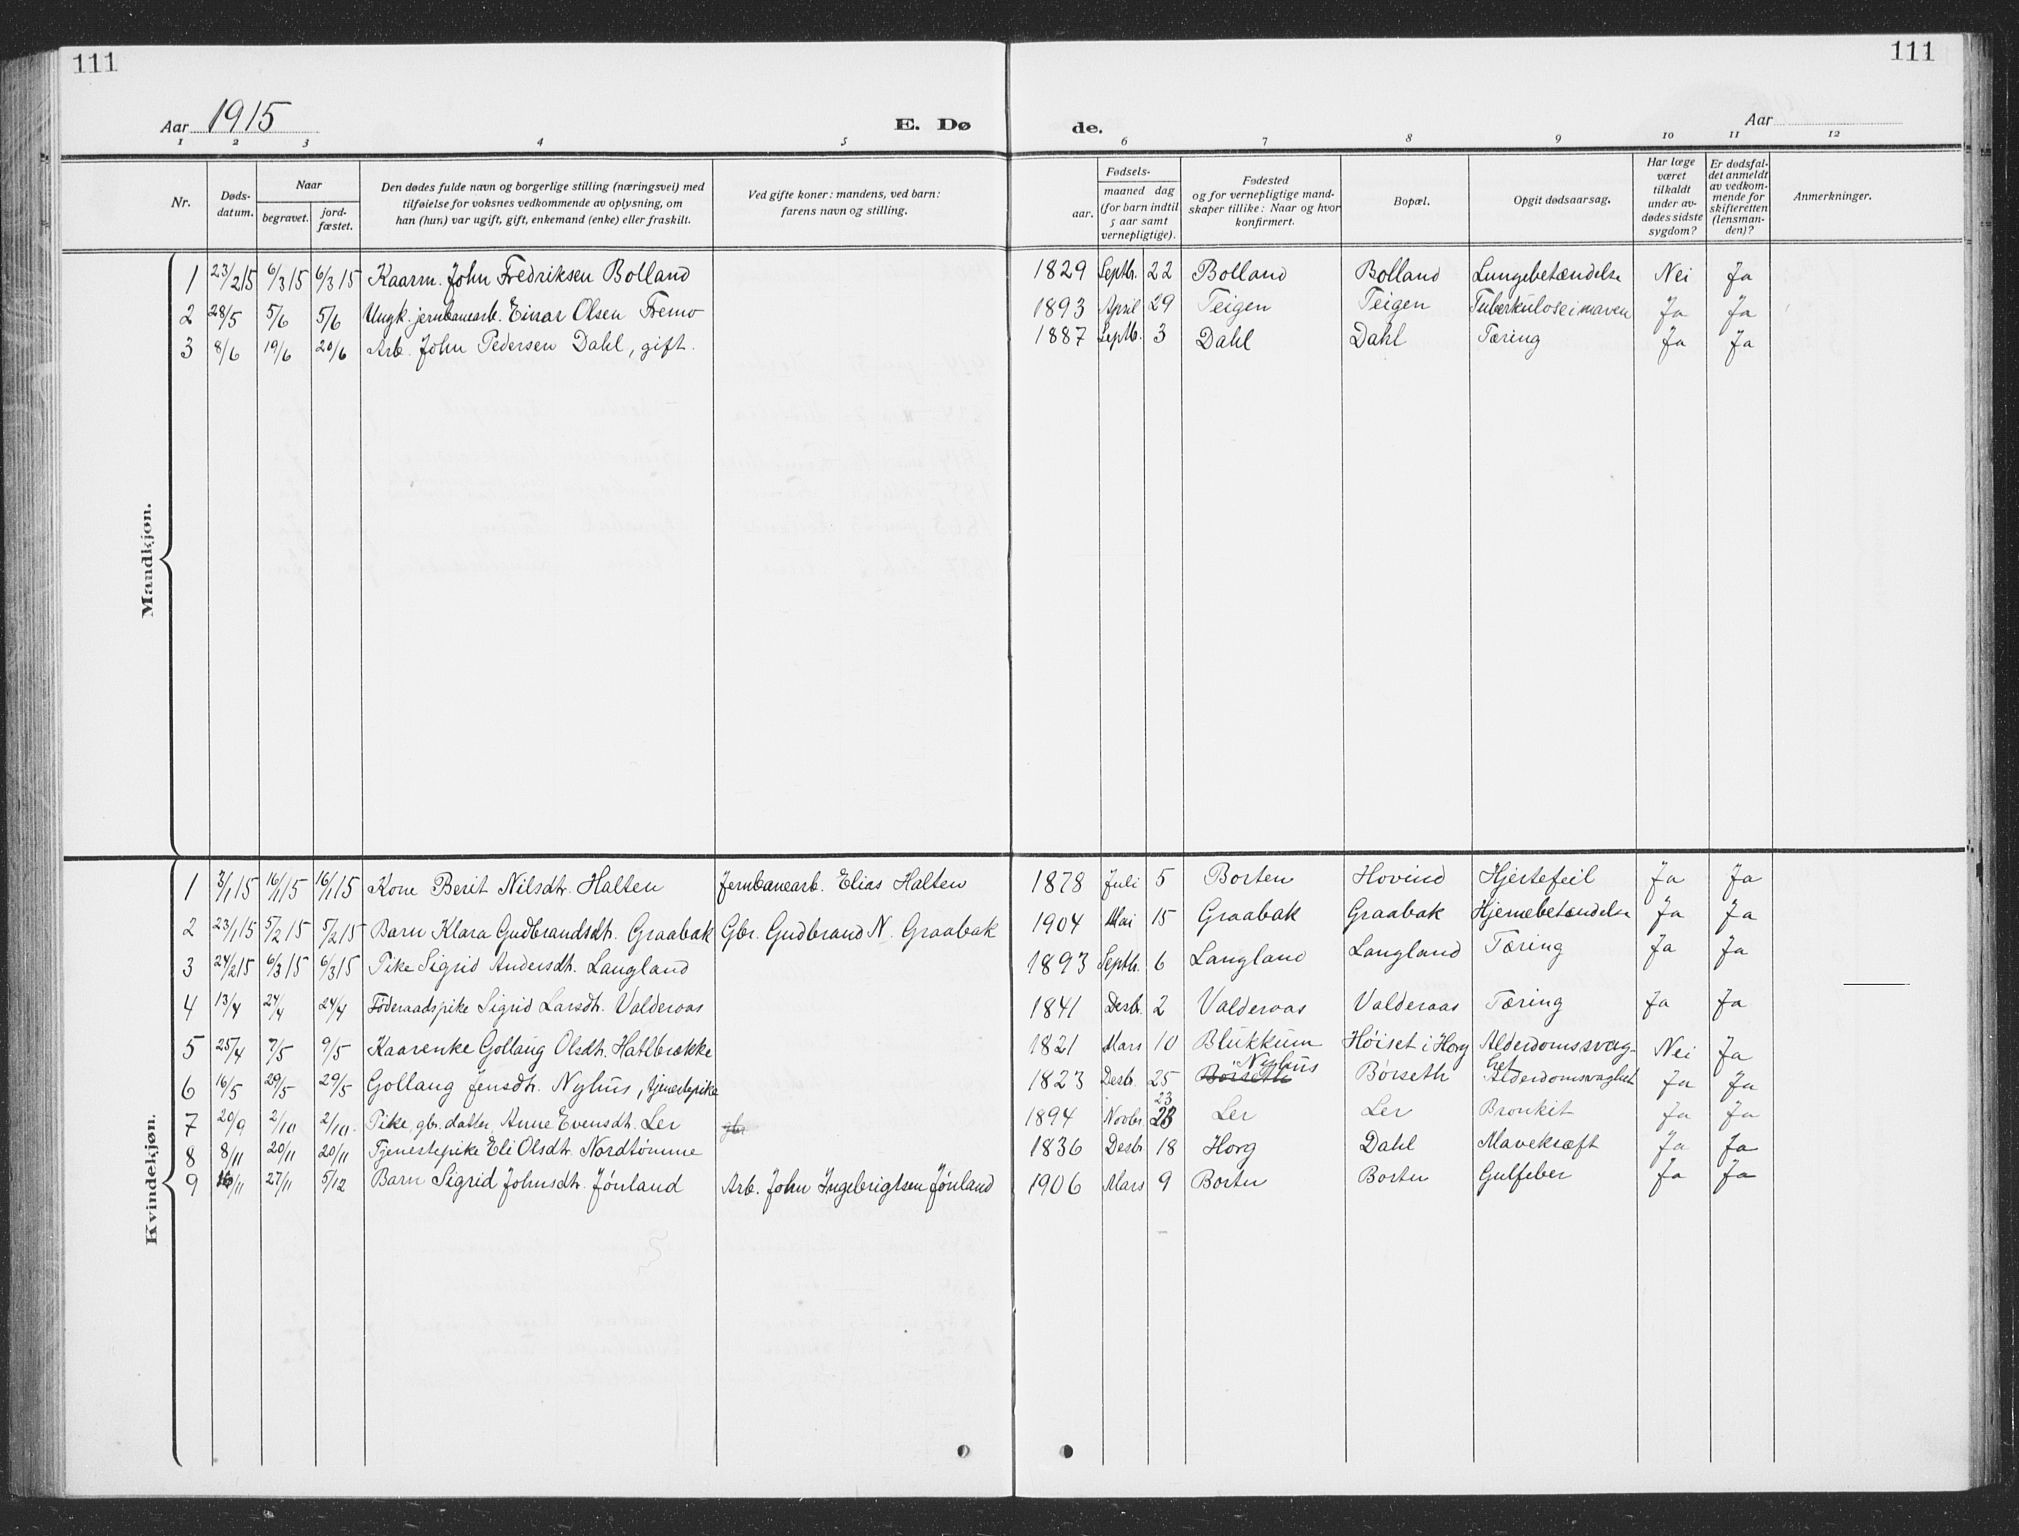 111
111
Aar 1915
E. Dø
de.
Aar
1 2 3 4 5 6 7 8 9 10 11 12
Nr.
Døds-
datum.
Naar
begravet.
jord-
fæstet.
Den dødes fulde navn og borgerlige stilling (næringsvei) med
tilføielse for voksnes vedkommende av oplysning, om
han (hun) var ugift, gift, enkemand (enke) eller fraskilt.
Ved gifte koner: mandens, ved barn:
farens navn og stilling.
Fødsels-
aar.
maaned dag
(for barn indtil
5 aar samt
vernepligtige).
Fødested
og for vernepligtige mand-
skaper tillike: Naar og hvor
konfirmert.
Bopæl.
Opgit dødsaarsag.
Har læge
været
tilkaldt
under av-
dødes sidste
sygdom?
Er dødsfal-
det anmeldt
av vedkom-
mende for
skifteretten
(lensman-
den)?
Anmerkninger.
Mandkjøn.
1 23/2 15 6/3 15 6/3 15 Kaarm. John Fredriksen Bolland 1829 Septb. 22 Bolland Bolland Lungebetændelse Nei Ja
2 28/5 5/6 5/6 Ungk. jernbanearb. Einar Olsen Fremo 1893 April 29 Teigen Teigen Tuberkulose i maven Ja Ja
3 8/6 19/6 20/6 Arb. John Pedersen Dahl, gift. 1887 Septb. 3 Dahl Dahl Tæring Ja Ja
Kvindekjøn.
1 3/1 15 16/1 15 16/1 15 Kone Berit Nilsdtr. Halten Jernbanearb. Elias Halten 1878 Juli 5 Borten Hovind Hjertefeil Ja Ja
2 23/1 15 5/2 15 5/2 15 Barn Klara Gudbrandsdt. Graabak Gbr. Gudbrand N. Graabak 1904 Mai 15 Graabak Graabak Hjernebetændelse Ja Ja
3 24/2 15 6/3 15 6/3 15 Pike Sigrid Andersdt. Langland 1893 Septb. 6 Langland Langland Tæring Ja Ja
4 13/4 24/4 24/4 Føderaadspike Sigrid Larsdt. Valderaas 1841 Desb. 2 Valderaas Valderaas Tæring Ja Ja
5 25/4 7/5 9/5 Kaarenke Gollaug Olsdt. Hatlbrække 1821 Mars 10 Blukkum Høiset i Horg Alderdomssvag-
het Nei Ja
6 16/5 29/5 29/5 Gollaug Jensdt. Nyhus, tjenestepike 1823 Desb. 25 Børseth Nyhus Børseth Alderdomsvaghet Ja Ja
7 20/9 2/10 2/10. Pike, gbr. datter, Anne Evensdt. Ler gbr 1894 Novbr. 23 23 Ler Ler Bronkit Ja Ja
8 8/11 20/11 20/11 Tjenestepike Eli Olsdt. Nordtømme 1836 Desb 18 Horg Dahl Mavekræft Ja Ja
9 16/11 27/11 5/12 Barn Sigrid Johnsdt. Jønland Arb. John Ingebrigtsen Jønland 1906 Mars 9 Borten Borten Gulfeber Ja Ja